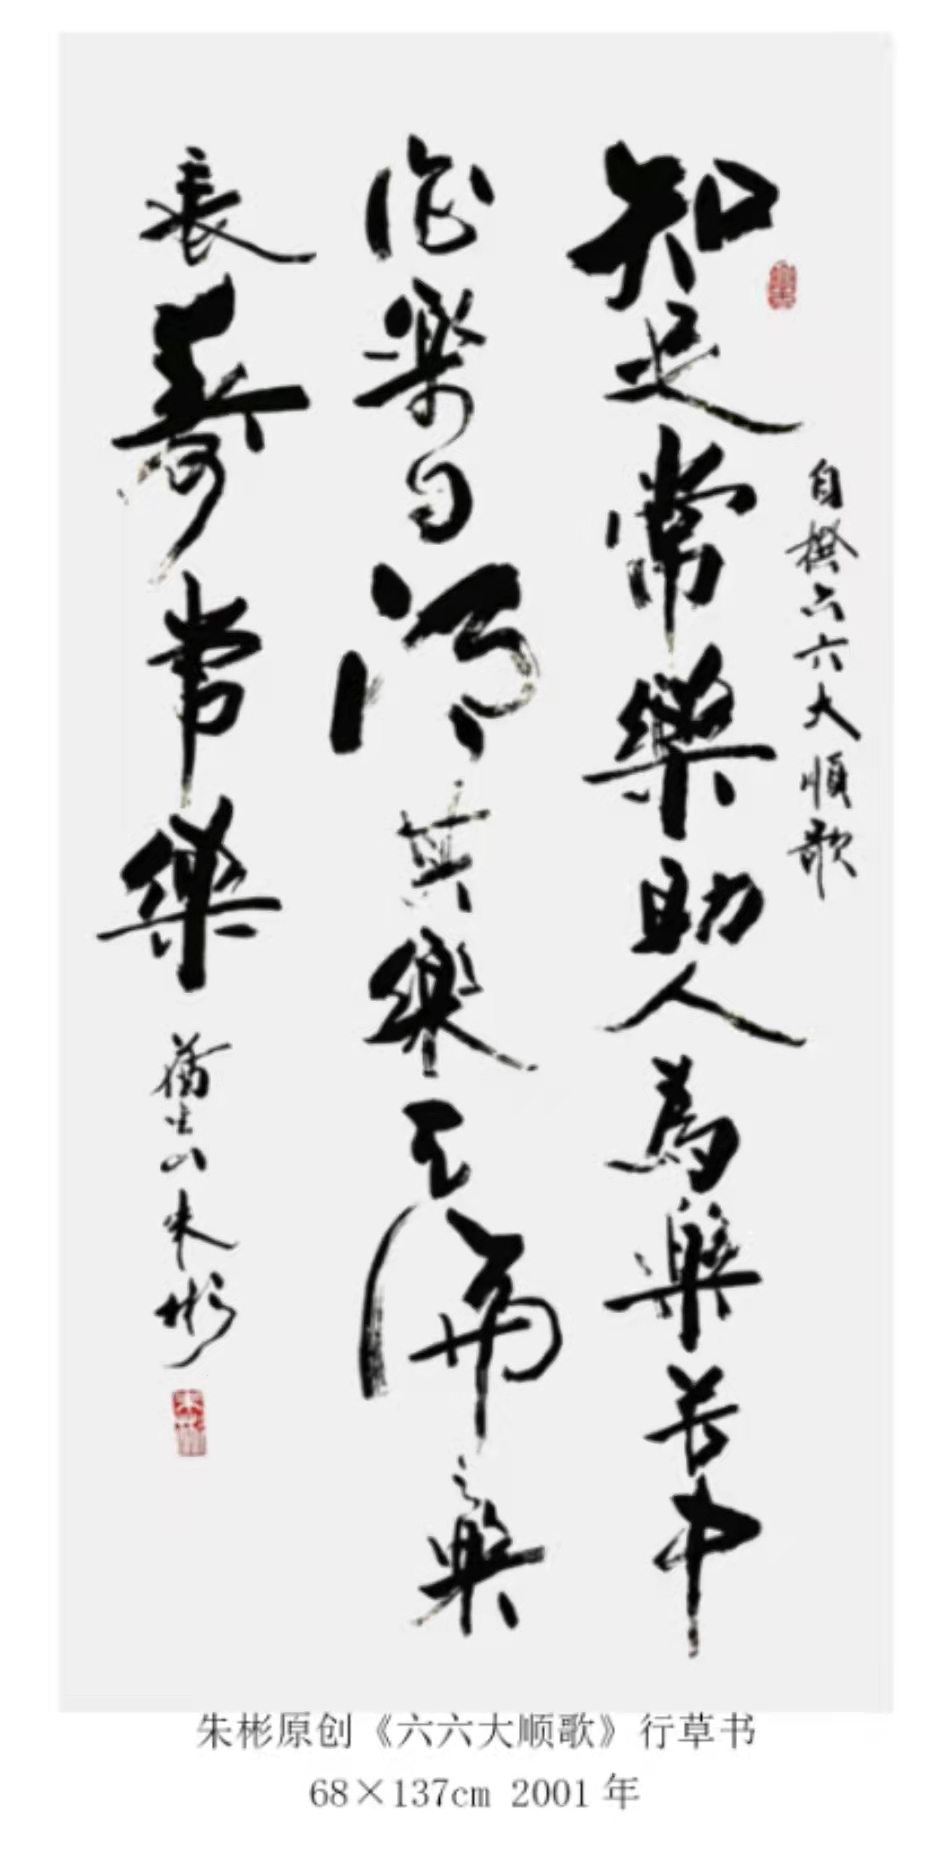 自撰六六大順歌
知足常樂助人為樂苦中
作樂自得其樂天倫之樂
長壽常樂
朱彬
朱彬原创《六六大顺歌》行草书
68×137cm 2001年